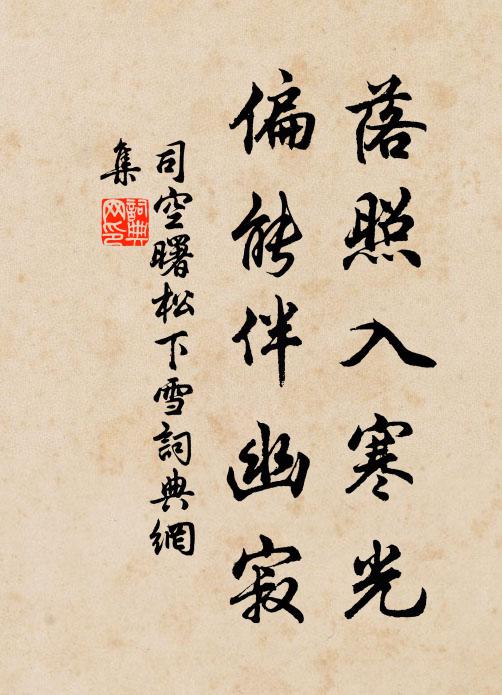 落照入寒光
偏能伴幽寂
司空曙松下雪詞典網
集
詞典
网印